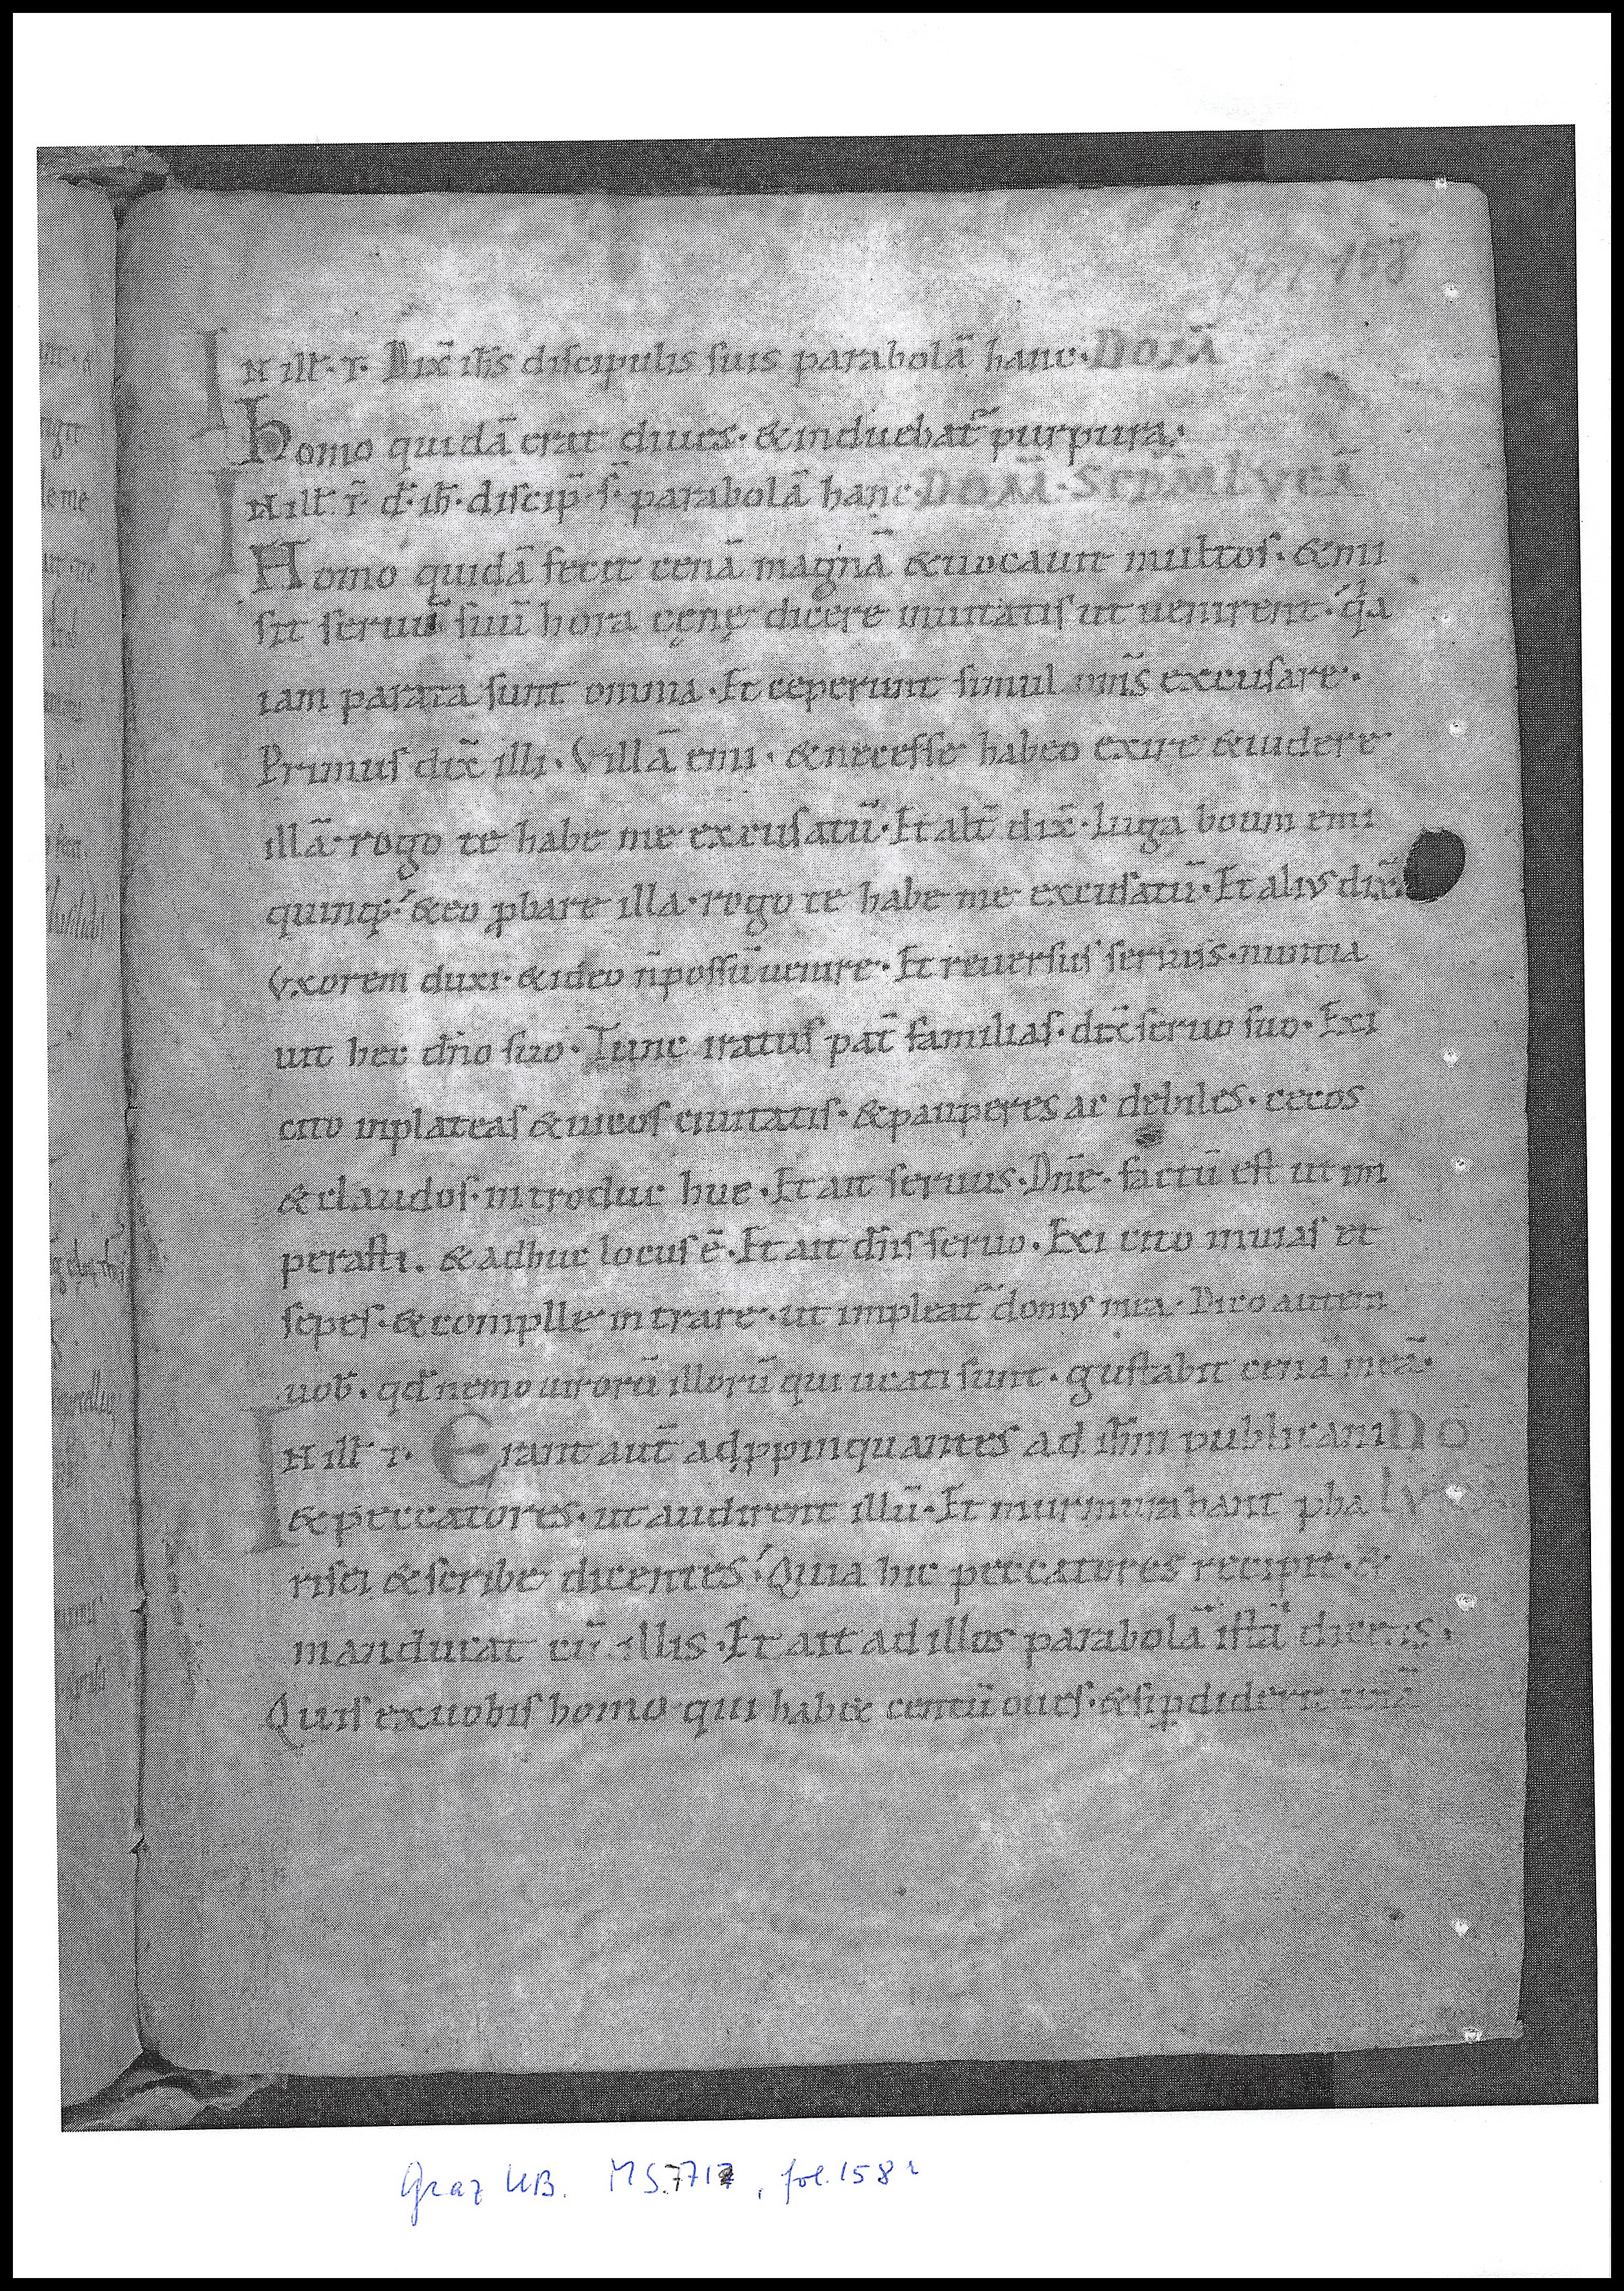 fol 158
IN illˉ. T. Dix̄ ih̄s discipulis suis parabolā hanc. DOM̄
Homo quidā erat diues. & induebat᷑ purpura.
IN illˉ. T̄ d̄. ih̄. discip̄ s̄. parabolā hanc. DOM̄.
Homo quidā fecit cenā magnā & uocauit multos. & mi
sit seruū suū hora cęnę dicere inuitatis ut uenirent. q̇a
iam parata sunt omnia. Et ceperunt simul om̄s excusare.
Primus dix̄ illi. Villā emi. & necesse habeo exire & uidere
illā. rogo te habe me excusatū. Et alt̄ dix̄. Iuga boum emi
quinq;. & eo ꝓbare illa. rogo te habe me excusatū. Et alius dix̄.
Vxorem duxi. & ideo n̄ possū uenire. Et reuersus seruus. nuntia
uit hec dn̄o suo. Tunc iratus pat̄ familias. dix̄ seruo suo. Exi
cito in plateas & uicos ciuitatis. & pauperes ac debiles. cecos
& claudos. introduc huc. Et ait seruus. Dn̄e. factū est ut im
perasti. & adhuc locus ē. Et ait dn̄s seruo. Exi cito in uias et
sepes. & complle intrare. ut impleat᷑ domus mea. Dico autem
uob̄. qd̄ nemo uirorū illorū qui ucati sunt. gustabit cenā meā.
IN illˉ T. Erant aut̄ adꝓpinquantes ad ih̄m publicani DO
& peccatores. ut audirent illū. Et murmurabant pha LV
risei & scribe dicentes. Quia hic peccatores recipit. &
manducat cū illis. Et ait ad illos parabolā istā dicens.
Quis ex uobis homo qui hab& centū oues. & si ꝑdiderit unā
Graz UB. MS. 771, fol. 158r